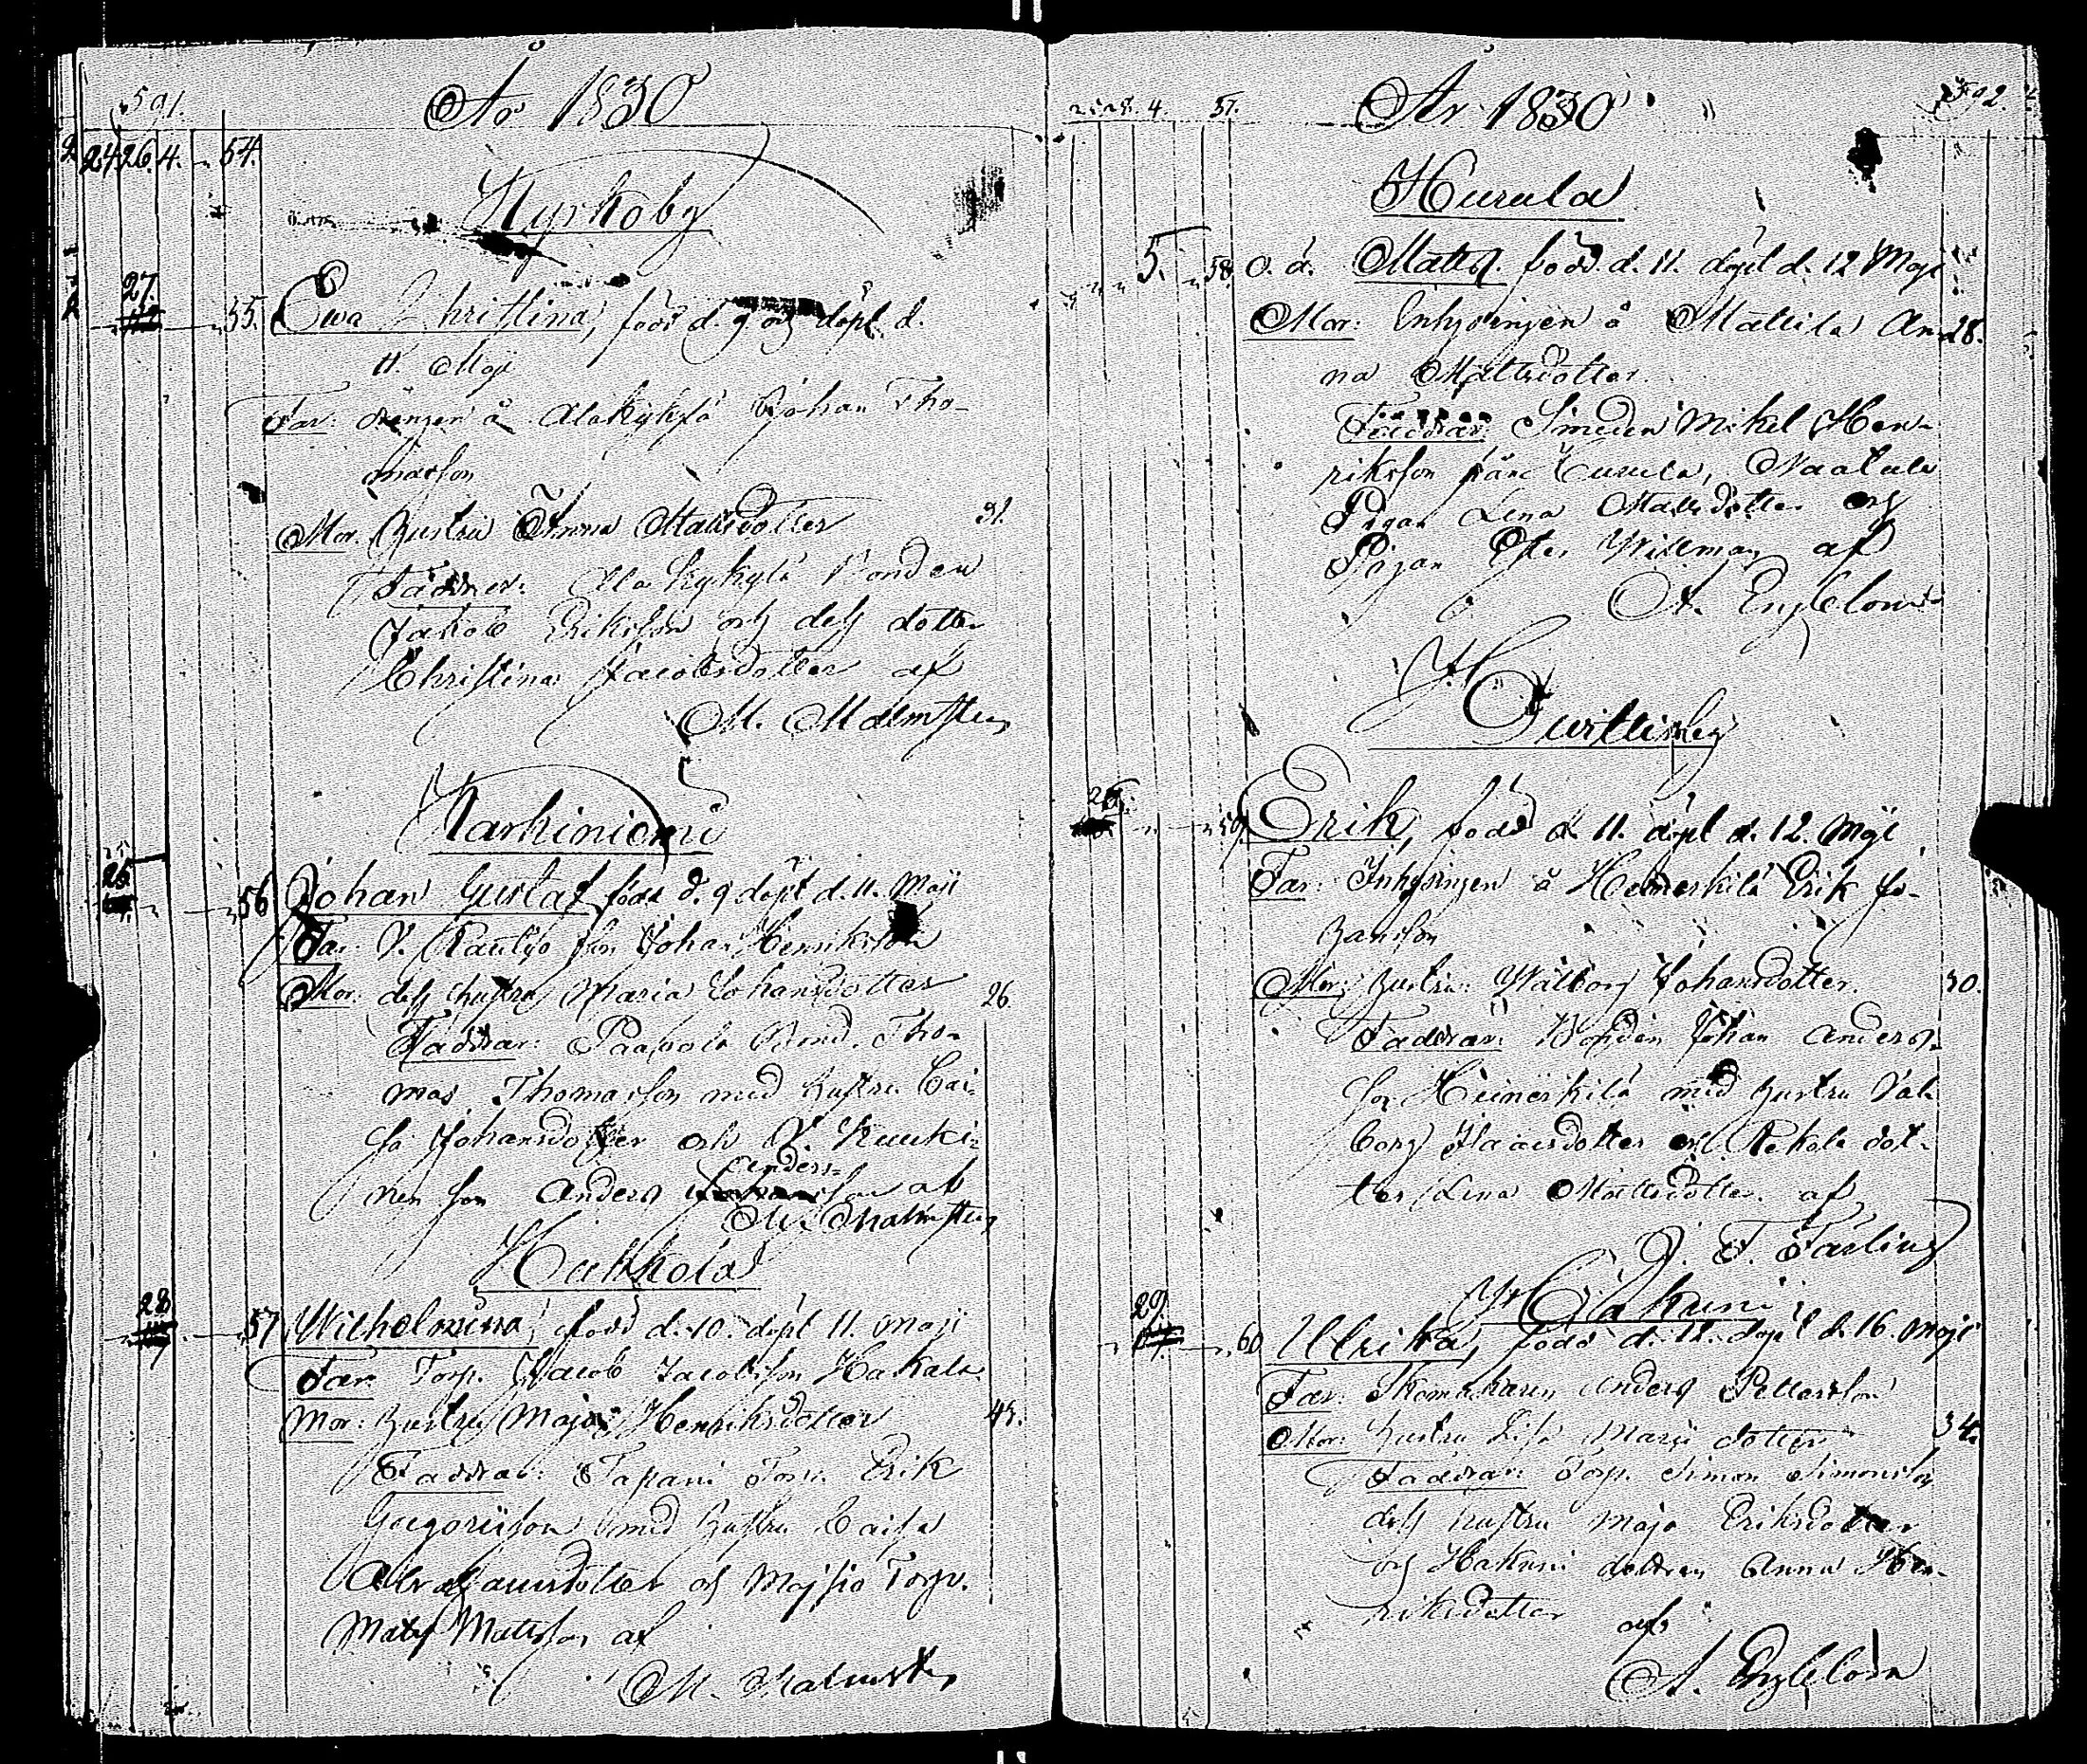 591.
År 1830
2 24 26. 4. 54.
Kyrkoby
27.
55. Ewa Christina, född d. 9 och döpt d.
11. Maji
Far: drengen å Alakykylä Johan Tho-
masson
Mor. Hustru Anna Mattsdotter 31.
Faddrar: Ala kykylä Bonden
Jakob Eriksson och dess dotter
Christina Jacobsdotter af
M. Malmsten
Karhiniemi
26.
56 Johan Gustaf född d. 9 döpt d. 11. Maji
Far: Son Johan Henriksson
Mor: dess hustru Maria Johansdotter 26.
Faddrar: Bond. Tho-
mas Thomasson med hustru Cai-
sa Johansdotter och Kuuki-
nen son Anders Anders-
son af
M. Malmsten
Huhkola
28
57 Wilhelmina, född d. 10. döpt 11. Maji
Far: Torp. Jacob Jacobsson Hakala
Mor: Hustru Maja Henriksdotter 43.
Faddrar: Tapani Torp. Erik
Gregorisson med hustru Caisa
Abrahamsdotter och Torp.
Matts Mattsson af
M. Malmsten
592.
25 28. 4. 57.
År 1830
Hurula
5. 58. O. ä. Matts. född. d. 11. döpt d. 12 Maji
Mor: Inhysingen å Mattila An- 28.
na Mattsdotter.
Faddrar: Smeden Mikel Hen-
riksson från
Pigan Lena Mattsdotter och
Pigan Willman af
A. Engblom
Hvittisby
26.
59. Erik, född d. 11. döpt d. 12. Maji
Far: Inhysingen å Heinerkilä Erik Jo-
hansson
Mor: Hustru: Walborg Johansdotter. 30.
Faddrar: Bonden Johan Anders-
son Heinerkilä med hustru Val-
borg Isaacsdotter och dot-
ter Lena Mattsdotter. af
J. F. Färling
29.
60 Ulrika, född d. 12. döpt d. 16. Maji
Far: Skomakaren Anders Pettersson
Mor: Hustru Lisa dotter 34.
Faddrar: Torp. Simon Simonsson
dess hustru Maja Eriksdotter
och Hakuni dottren Anna Hen-
riksdotter af
A. Engblom